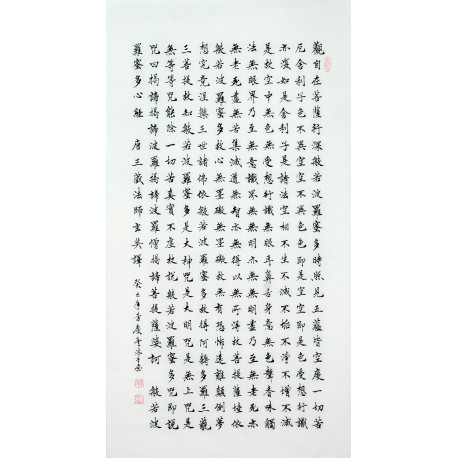 觀自在菩薩行深般若波羅蜜多時照見五蘊皆空度一切苦
厄舍利子色不異空空不異色色即是空空即是色受想行識
亦復如是舍利子是諸法空相不生不滅不垢不淨不增不減
是故空中無色無受想行識無眼耳鼻舌身意無色聲香味觸
法無眼界乃至無意識界無無明亦無無明盡乃至無老死亦
無老死盡無苦集滅道無智亦無得以無所得故菩提薩埵依
般若波羅蜜多故心無罣礙無罣礙故無有恐怖遠離顛倒夢
想究竟涅槃三世諸佛依般若波羅蜜多故得阿耨多羅三藐
三菩提故知般若波羅蜜多是大神咒是大明咒是無上咒是
無等等咒能除一切苦真實不虛故說般若波羅蜜多咒即說
咒曰揭諦揭諦波羅揭諦波羅僧揭諦菩提薩婆訶 般若波
羅蜜多心經 唐三藏法師玄奘譯 癸巳年